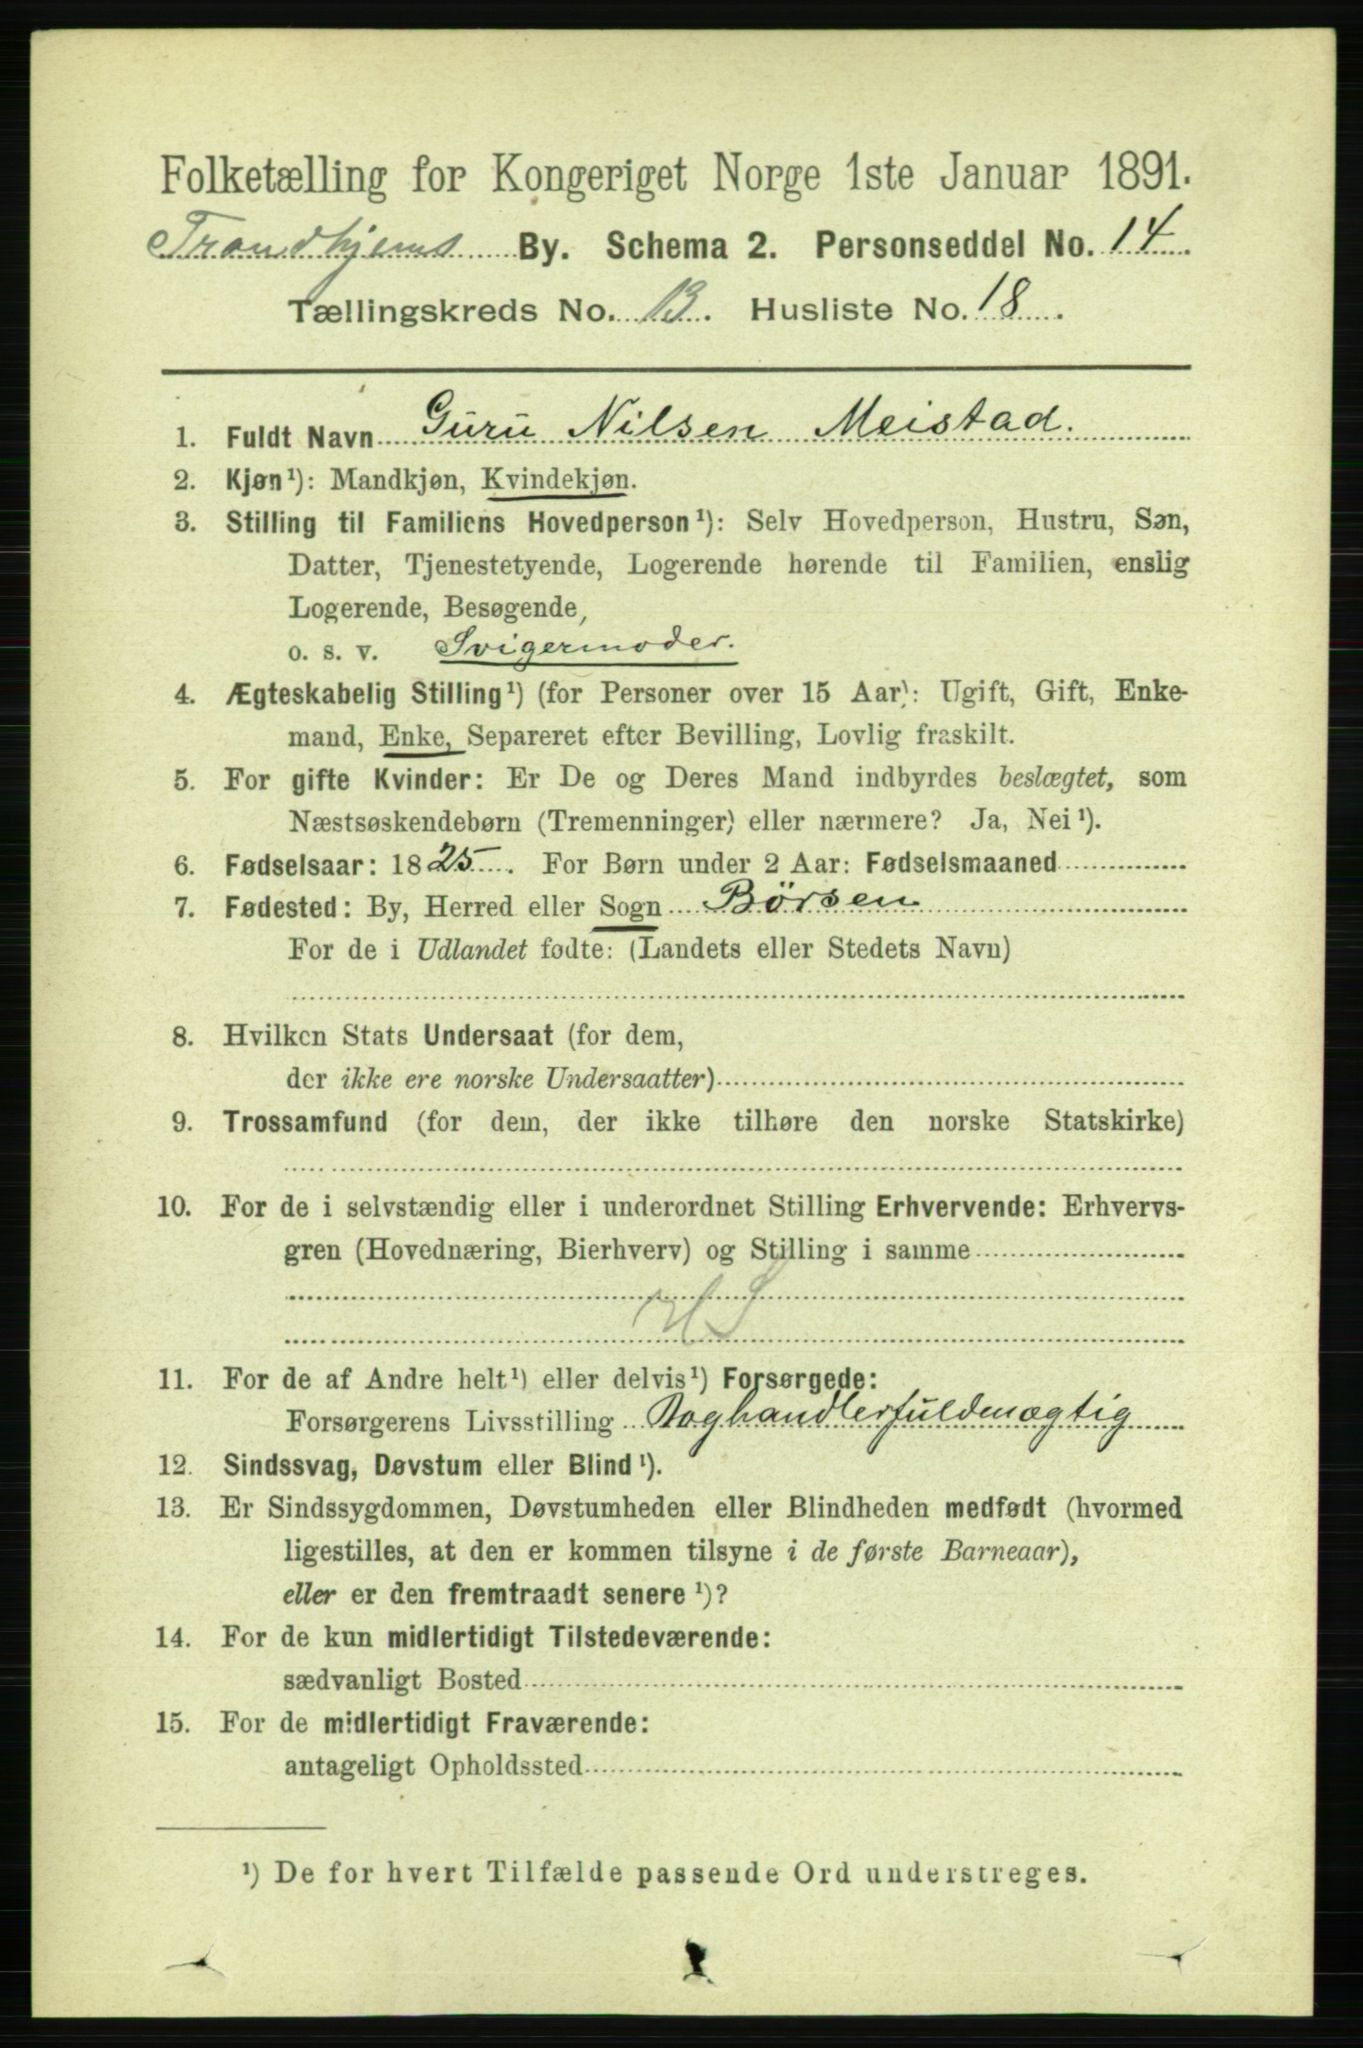 Folketælling for Kongeriget Norge 1ste Januar 1891.
Trondhjems By. Schema 2. Personseddel No. 14
Tællingskreds No. 13. Husliste No. 18.
1. Fuldt Navn Guru Nilsen Meistad.
2. Kjøn¹): Mandkjøn, Kvindekjøn.
3. Stilling til Familiens Hovedperson¹): Selv Hovedperson, Hustru, Søn,
Datter, Tjenestetyende, Logerende hørende til Familien, enslig
Logerende, Besøgende,
o. s. v. Svigermoder.
4. Ægteskabelig Stilling¹) (for Personer over 15 Aar): Ugift, Gift, Enke-
mand, Enke, Separeret efter Bevilling, Lovlig fraskilt.
5. For gifte Kvinder: Er De og Deres Mand indbyrdes beslægtet, som
Næstsøskendebørn (Tremenninger) eller nærmere? Ja, Nei¹).
6. Fødselsaar: 1825. For Børn under 2 Aar: Fødselsmaaned
7. Fødested: By, Herred eller Sogn Börsen
For de i Udlandet fødte: (Landets eller Stedets Navn)
8. Hvilken Stats Undersaat (for dem,
der ikke ere norske Undersaatter)
9. Trossamfund (for dem, der ikke tilhøre den norske Statskirke)
10. For de i selvstændig eller i underordnet Stilling Erhvervende: Erhvervs-
gren (Hovednæring, Bierhverv) og Stilling i samme
11. For de af Andre helt¹) eller delvis¹) Forsørgede:
Forsørgerens Livsstilling Boghandlerfuldmægtig
12. Sindssvag, Døvstum eller Blind¹).
13. Er Sindssygdommen, Døvstumheden eller Blindheden medfødt (hvormed
ligestilles, at den er kommen tilsyne i de første Barneaar),
eller er den fremtraadt senere¹)?
14. For de kun midlertidigt Tilstedeværende:
sædvanligt Bosted
15. For de midlertidigt Fraværende:
antageligt Opholdssted
¹) De for hvert Tilfælde passende Ord understreges.